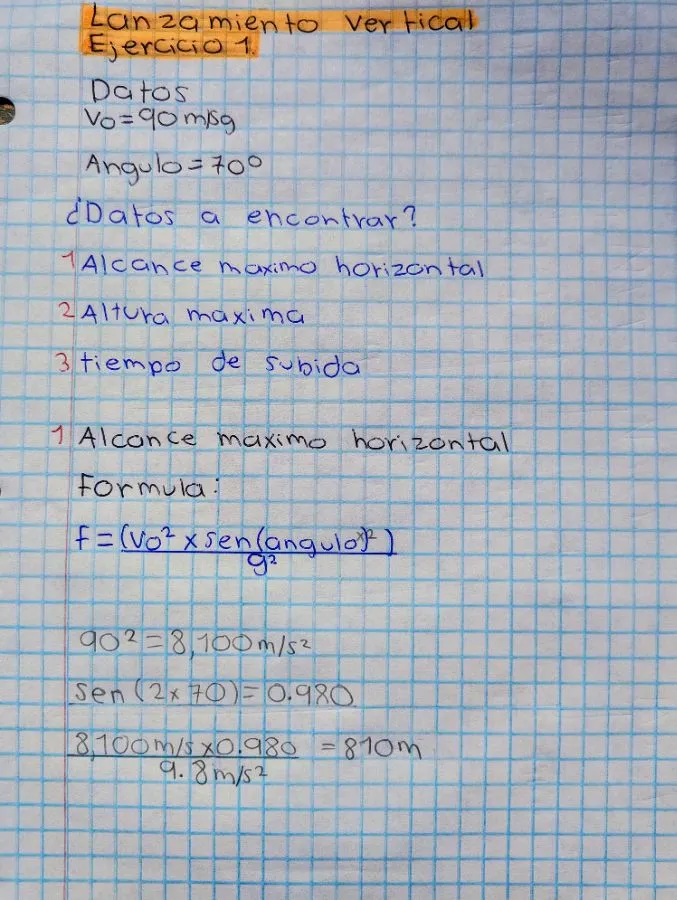 Lanzamiento vertical
Ejercicio 1.
Datos
Vo=90m/sg
Angulo=70°
¿Datos a encontrar?
1 Alcance maximo horizontal
2 Altura maxima
3 tiempo de subida
1 Alcance maximo horizontal
Formula:
f=(Vo² x sen(angulo x)²)
g²
90²=8,100m/s²
sen(2x70)=0.980
8,100m/s x0.980 =810m
9.8m/s²